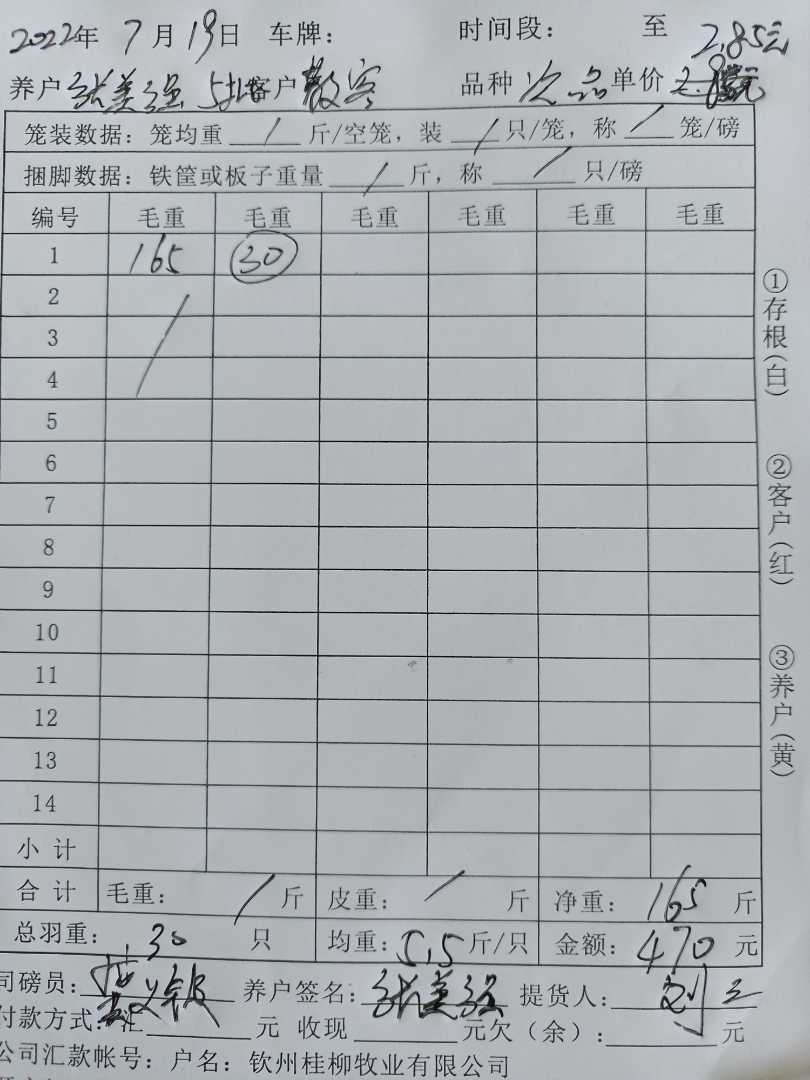 2022年 7月19日 车牌： 时间段： 至
2.85元
养户 张美强 客户 散客 品种 次品 单价
笼装数据：笼均重 / 斤/空笼，装 / 只/笼，称 / 笼/磅
捆脚数据：铁筐或板子重量 / 斤，称 / 只/磅
编号 毛重 毛重 毛重 毛重 毛重 毛重
1 165 30
2
3
4
5
6
7
8
9
10
11
12
13
14
小 计
合 计 毛重： / 斤 皮重： / 斤 净重：165 斤
总羽重：30 只 均重：5.5 斤/只 金额：470 元
司磅员： 养户签名：张美强 提货人：
付款方式：汇 元 收现 元欠（余）： 元
公司汇款帐号：户名：钦州桂柳牧业有限公司
①存根（白）
②客户（红）
③养户（黄）